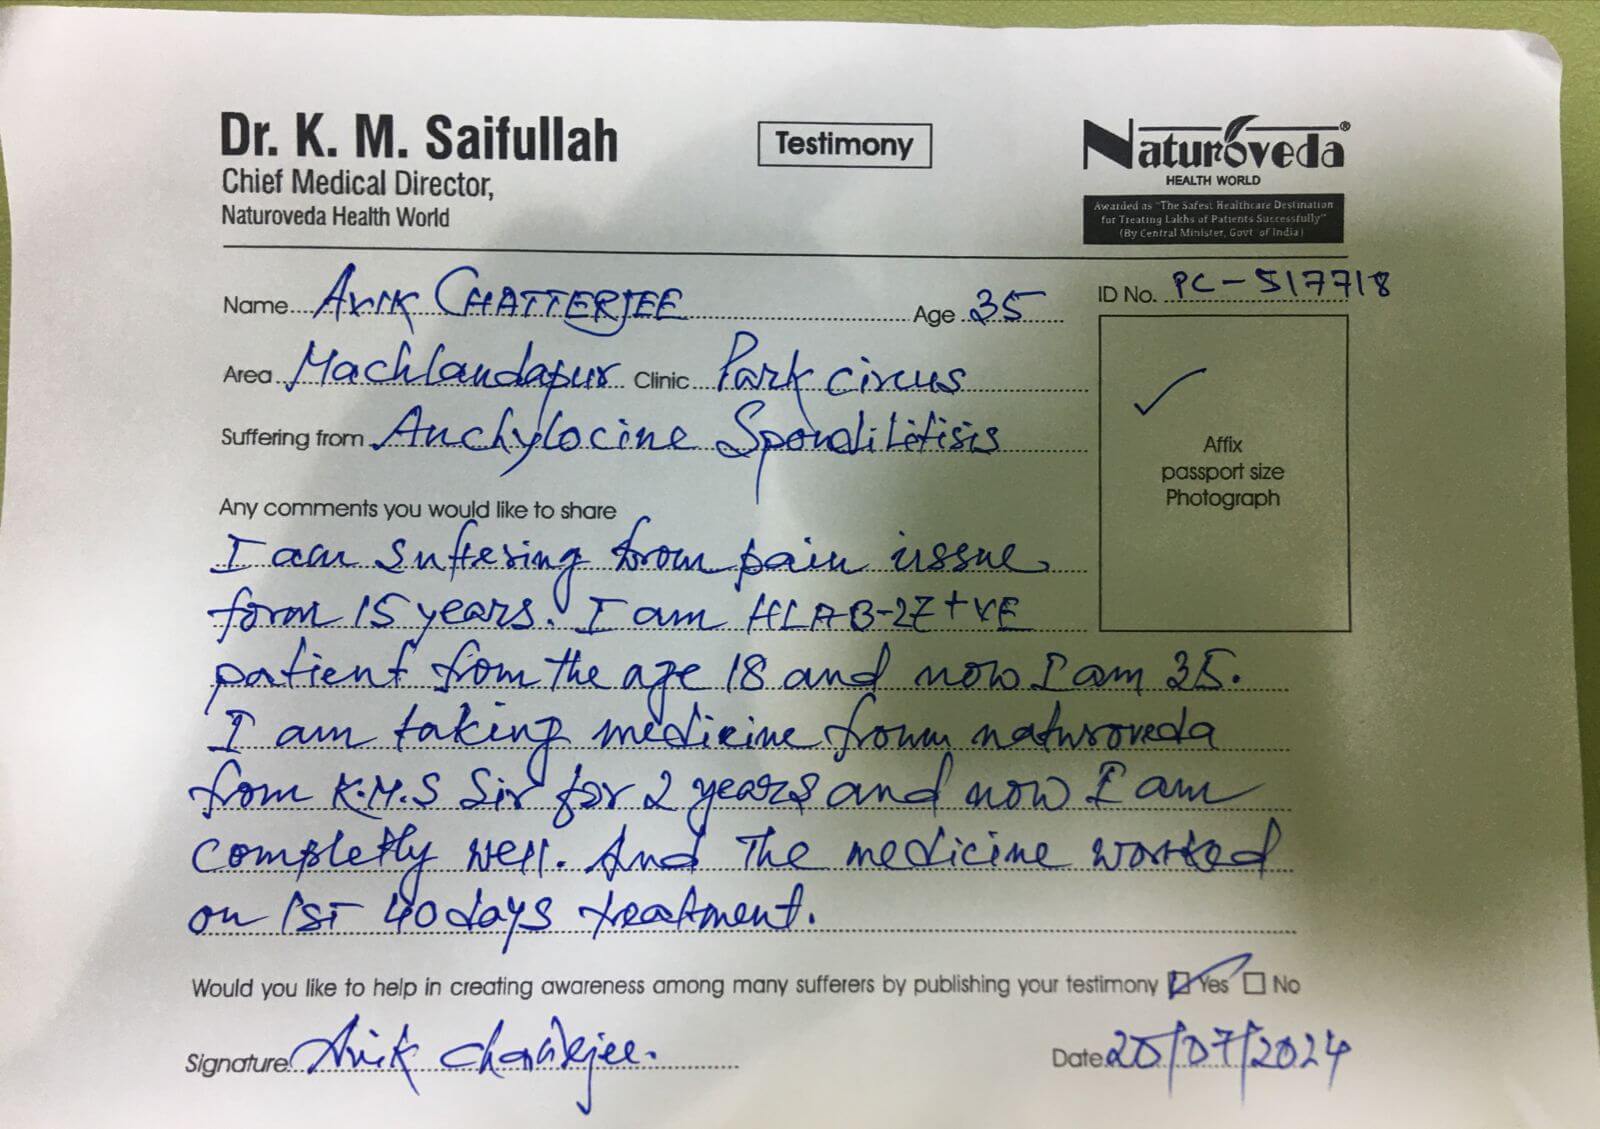 Dr. K. M. Saifullah
Chief Medical Director,
Naturoveda Health World
Testimony
Naturoveda®
HEALTH WORLD
Awarded as "The Safest Healthcare Destination
for Treating Lakhs of Patients Successfully"
(By Central Minister, Govt of India)
Name AVIK CHATTERJEE Age 35
ID No. PC-517718
Area Machlandapur Clinic Park circus
Suffering from Anchylocine Spondilitisis
Affix
passport size
Photograph
Any comments you would like to share
I am suffering from pain issue
form 15 years. I am HLAB-27+VE
patient from the age 18 and now I am 35.
I am taking medicine from naturoveda
from K.M.S Sir for 2 years and now I am
completly well. And The medicine worked
on 1ST 40 days treatment.
Would you like to help in creating awareness among many sufferers by publishing your testimony Yes No
Signature Avik Chatterjee.
Date 20/07/2024